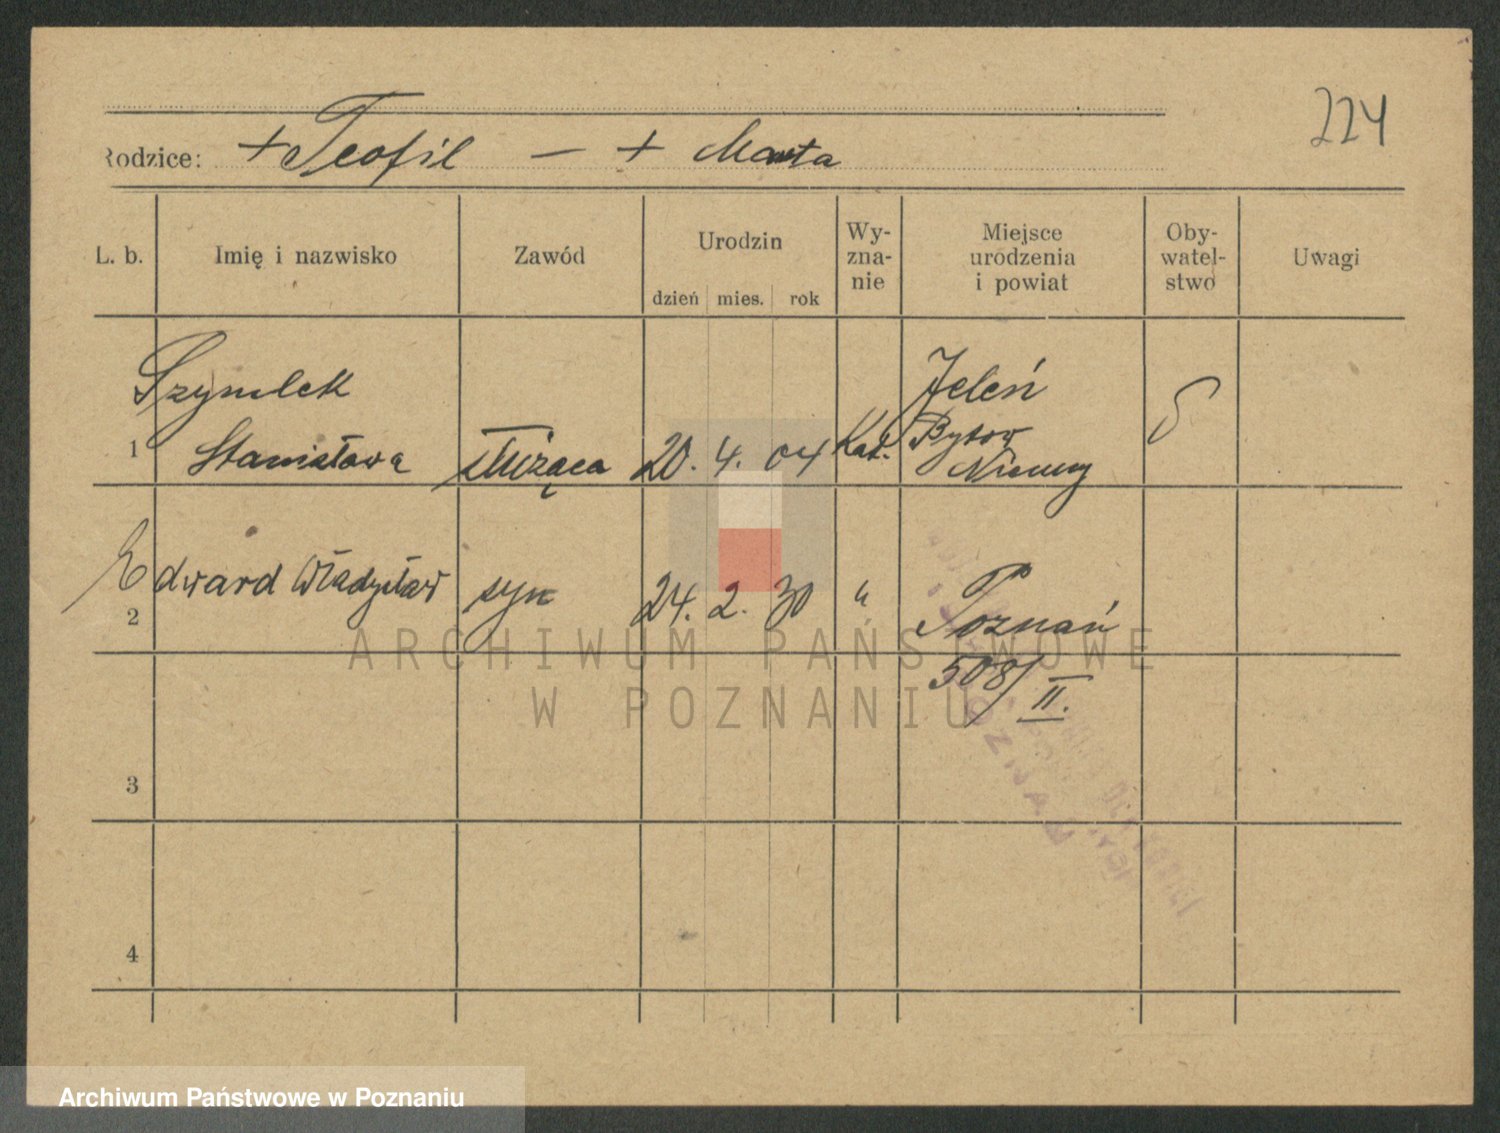 224
Rodzice: + Teofil — + Marta
L. b.
Imię i nazwisko
Zawód
Urodzin
dzień mies. rok
Wy-
zna-
nie
Miejsce
urodzenia
i powiat
Oby-
watel-
stwo
Uwagi
Szymlek
1 Stanisława służąca 20. 4. 04 Kat.
Jeleń
Bytow
Niemcy
2 Edward Władysław syn 24. 2. 30 " Poznań
508/II.
3
4
ARCHIWUM PAŃSTWOWE
W POZNANIU
Archiwum Państwowe w Poznaniu